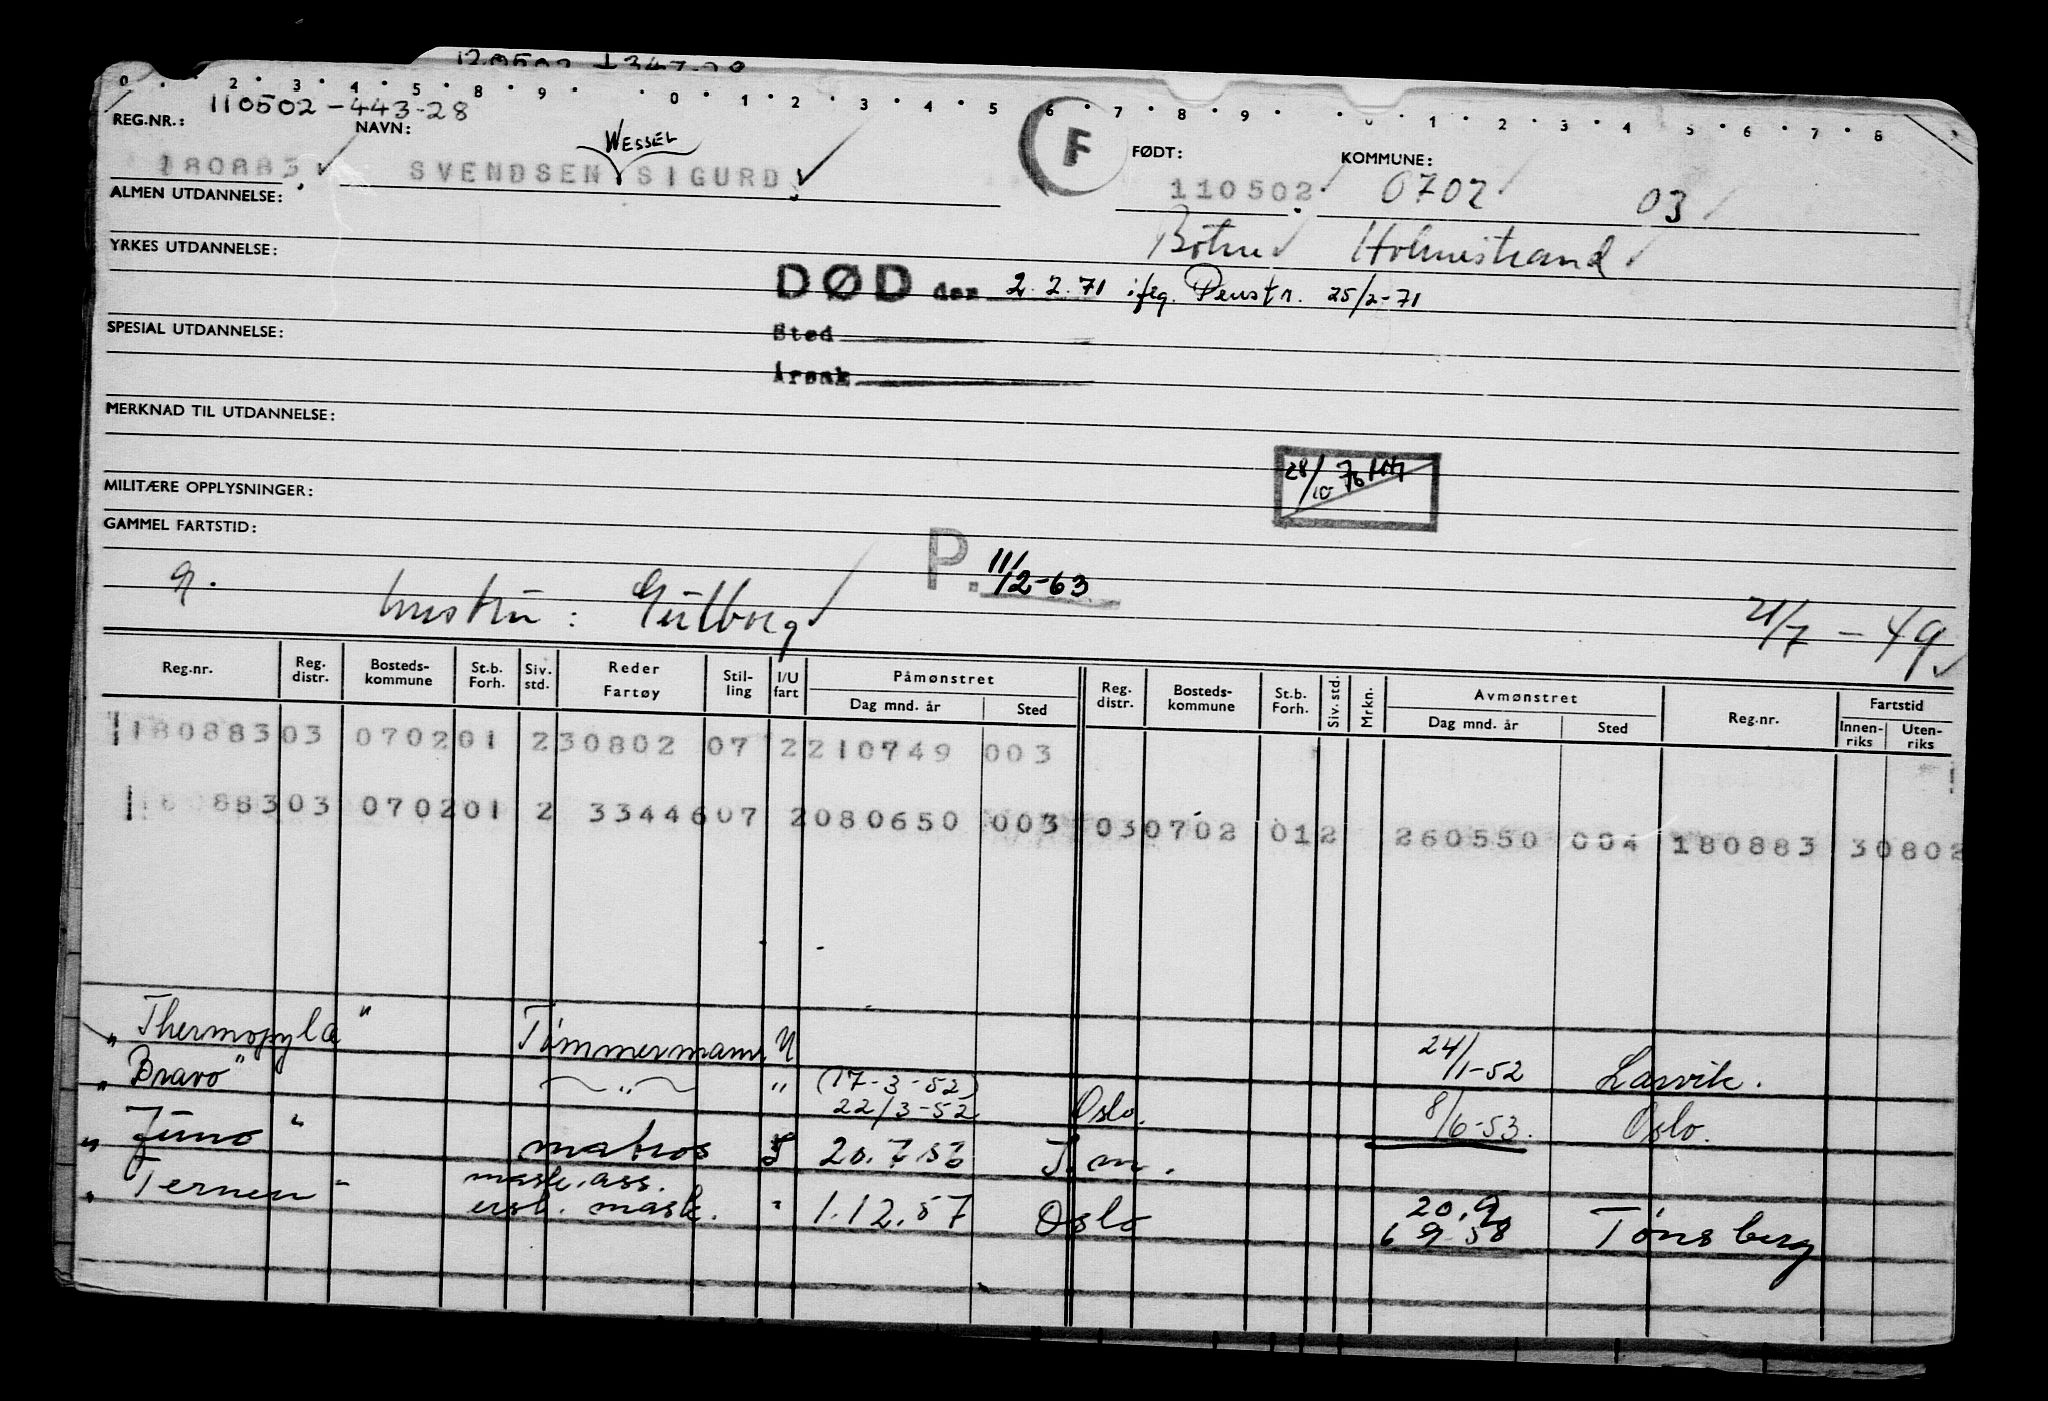 0 2 3 4 5 8 9 0 1 2 3 4 5 6 7 8 9 0 1 2 3 4 5 6 7 8
REG.NR.: 110502-443-28
NAVN:
WESSEL
F
FØDT:
KOMMUNE:
180883 SVENDSEN SIGURD
110502 0702 03
ALMEN UTDANNELSE:
Botne Holmestrand
YRKES UTDANNELSE:
DØD den 2.2.71 iflg. Penstr. 25/2-71
SPESIAL UTDANNELSE:
Sted
Årsak
MERKNAD TIL UTDANNELSE:
28/10 76
MILITÆRE OPPLYSNINGER:
GAMMEL FARTSTID:
P. 11/2-63
g. hustru: Gulborg
21/7 - 49
Reg.nr. Reg. distr. Bosteds-kommune St.b. Forh. Siv. std. Reder Fartøy Stil-ling I/U fart Påmønstret Dag mnd. år Sted Reg. distr. Bosteds-kommune St.b. Forh. Siv. std. Mrkn. Avmønstret Dag mnd. år Sted Reg.nr. Fartstid Innen-riks Uten-riks
180883 03 0702 01 2 30802 07 2 210749 003
88303 0702 01 2 33446 07 2 080650 003 03 0702 01 2 260550 004 180883 30802
"Thermopylæ" Tømmermann U 24/1-52 Larvik.
"Bravo" " " (17-3-52) 22/3-52 Oslo. 8/6-53. Oslo.
"Juno" matros 20.7.56 T.m.
"Ternen" mask.ass. 20.9
ust. mask. " 1.12.57 Oslo 6 9-58 Tønsberg